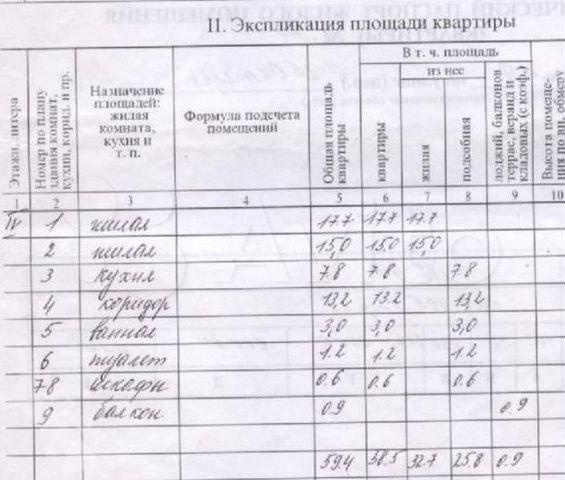 II. Экспликация площади квартиры
Этажи, литера
Номер по плану здания комнат, кухни, корид. и пр.
Назначение площадей: жилая комната, кухня и т. п.
Формула подсчета помещений
Общая площадь квартиры
В т. ч. площадь
квартиры
из нее
жилая
подсобная
лоджий, балконов террас, веранд и кладовых (с коэф.)
Высота помеще- ния по вн. обмеру
1 2 3 4 5 6 7 8 9 10
IV 1 жилая 17.7 17.7 17.7
2 жилая 15,0 15.0 15,0
3 кухня 7.8 7.8 7.8
4 коридор 13,2 13.2 13,2
5 ванная 3,0 3,0 3,0
6 туалет 1.2 1.2 1.2
78 шкафы 0.6 0.6 0.6
9 балкон 0.9 0.9
59.4 58.5 32.7 25.8 0.9